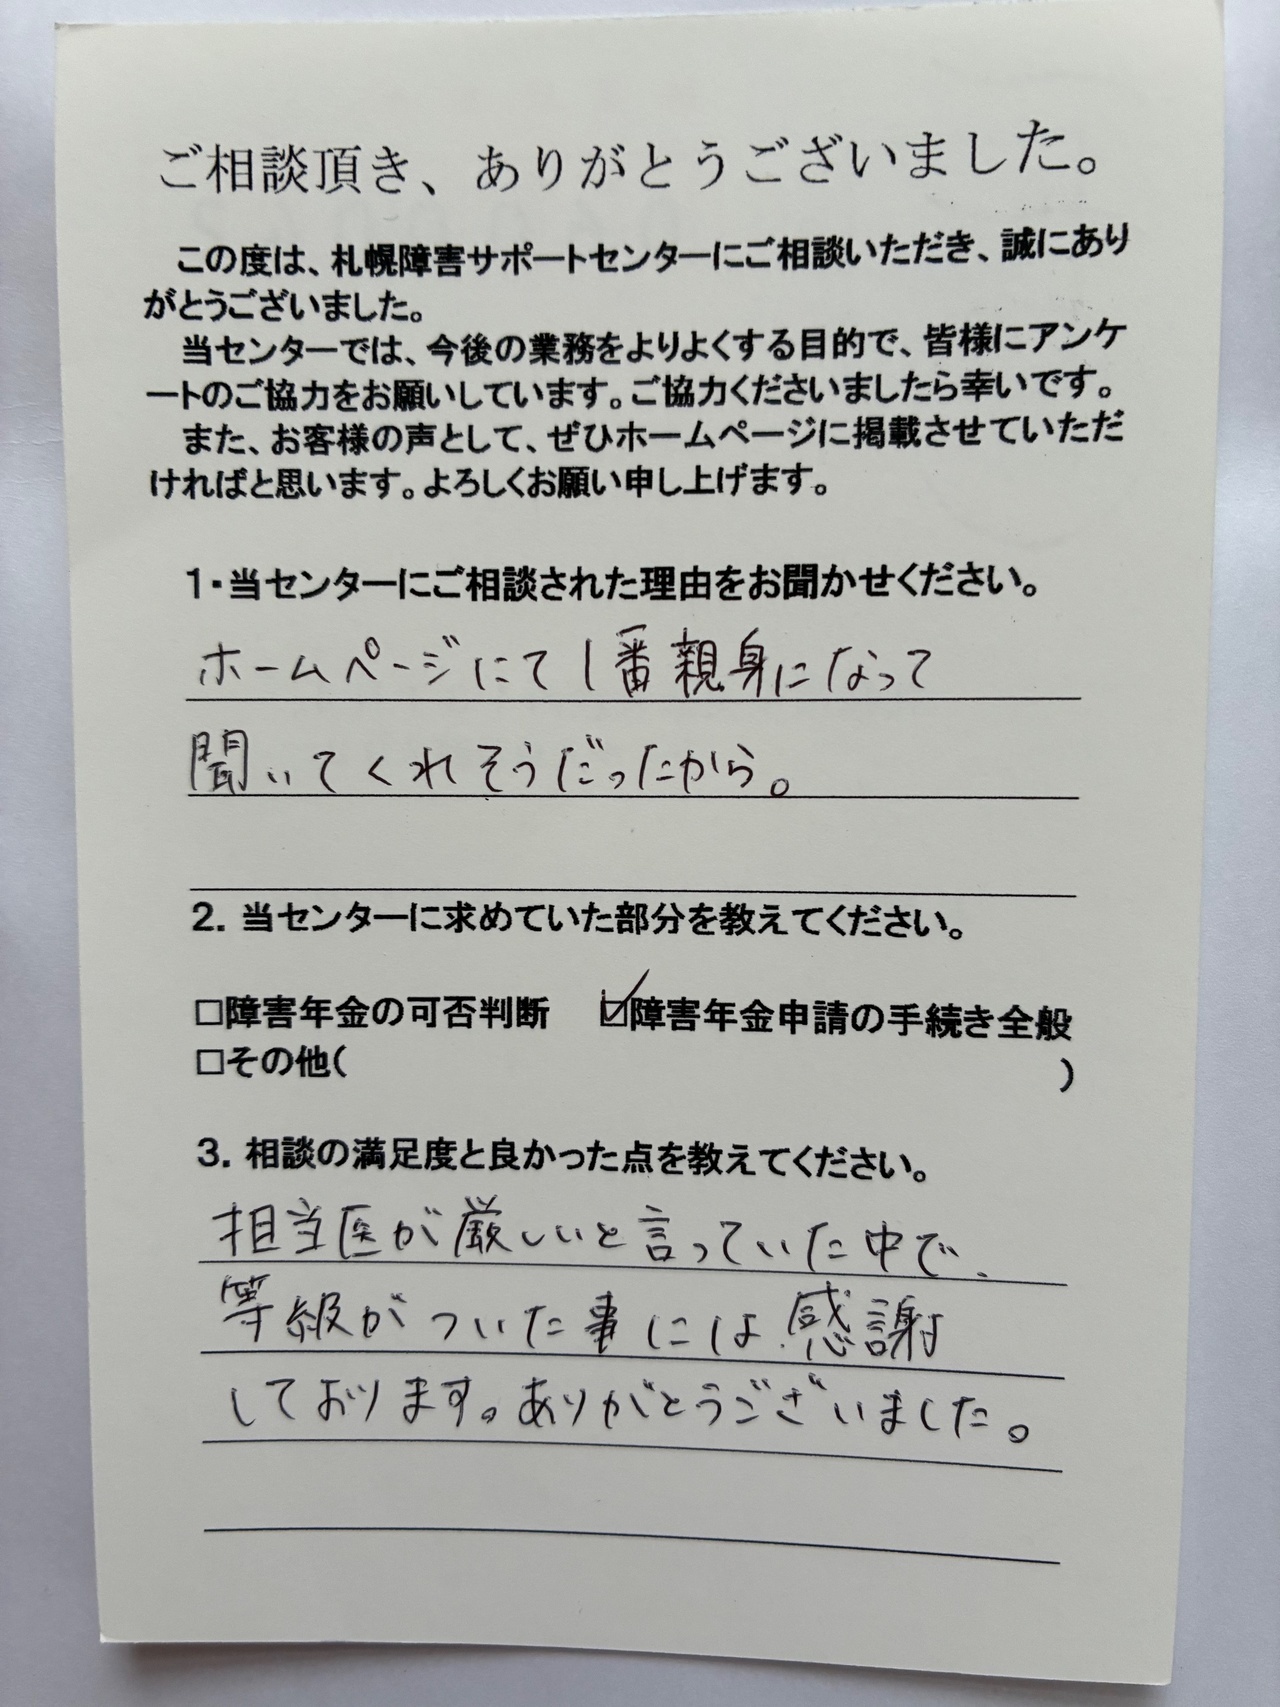 ご相談頂き、ありがとうございました。
この度は、札幌障害サポートセンターにご相談いただき、誠にあり
がとうございました。
当センターでは、今後の業務をよりよくする目的で、皆様にアンケ
ートのご協力をお願いしています。ご協力くださいましたら幸いです。
また、お客様の声として、ぜひホームページに掲載させていただ
ければと思います。よろしくお願い申し上げます。
1・当センターにご相談された理由をお聞かせください。
ホームページにて1番親身になって
聞いてくれそうだったから。
2. 当センターに求めていた部分を教えてください。
□障害年金の可否判断 ☑障害年金申請の手続き全般
□その他( )
3. 相談の満足度と良かった点を教えてください。
担当医が厳しいと言っていた中で、
等級がついた事には感謝
しております。ありがとうございました。